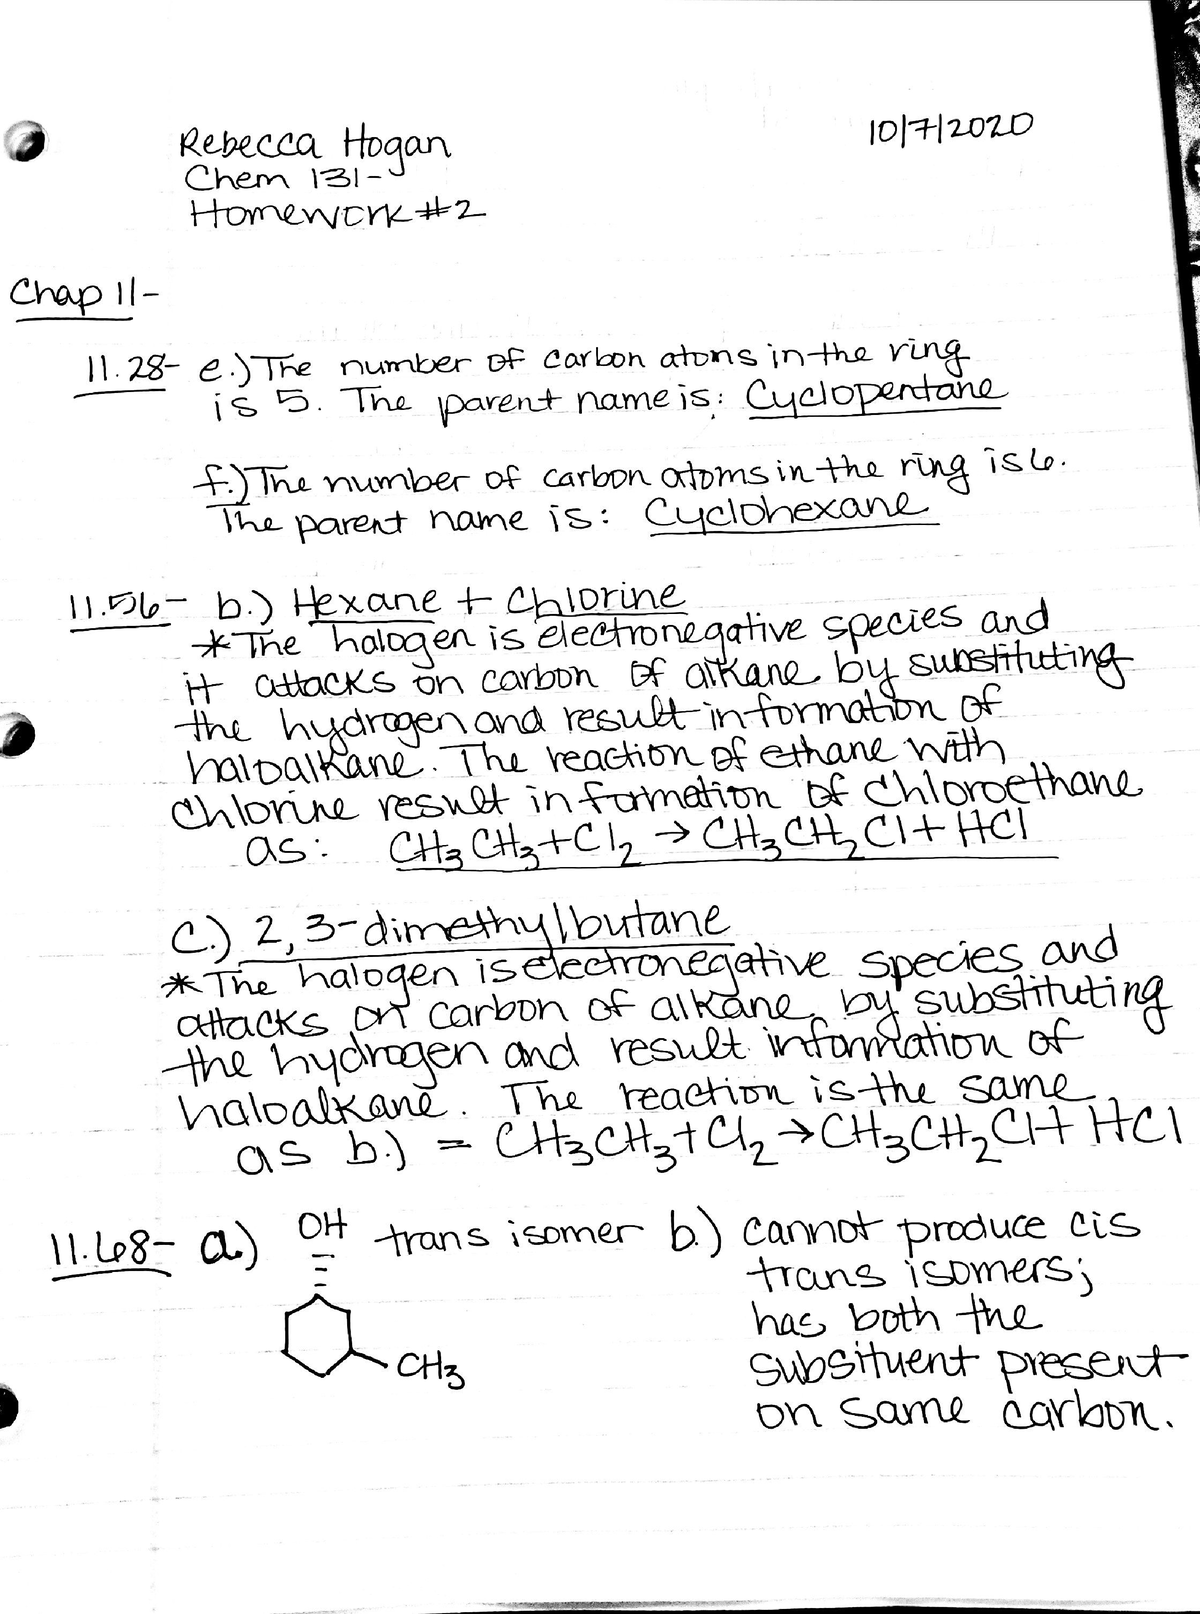 Rebecca Hogan
10/7/2020
Chem 131-
Homework #2
Chap 11-
11.28- e.) The number of carbon atoms in the ring
is 5. The parent name is: Cyclopentane
f.) The number of carbon atoms in the ring is 6.
The parent name is: Cyclohexane
11.56- b.) Hexane + Chlorine
* The halogen is electronegative species and
it attacks on carbon of alkane by substituting
the hydrogen and result in formation of
haloalkane. The reaction of ethane with
Chlorine result in formation of Chloroethane
as: CH₃CH₃+Cl₂ → CH₃CH₂Cl + HCl
C.) 2,3-dimethylbutane
* The halogen is electronegative species and
attacks on carbon of alkane by substituting
the hydrogen and result in formation of
haloalkane. The reaction is the same
as b.) = CH₃CH₃+Cl₂ → CH₃CH₂Cl + HCl
11.68- a.) OH trans isomer b.) cannot produce cis
trans isomers;
has both the
CH₃ subsituent present
on same carbon.